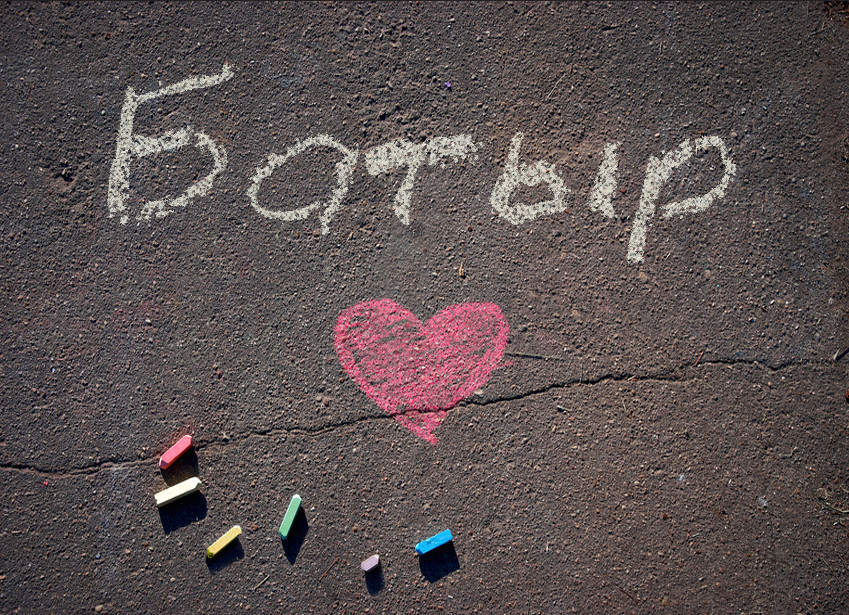 Батыр